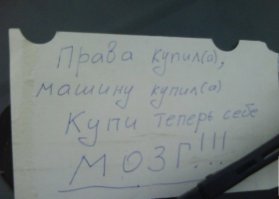 Права купил(а),
машину купил(а)
Купи теперь себе
МОЗГ!!!